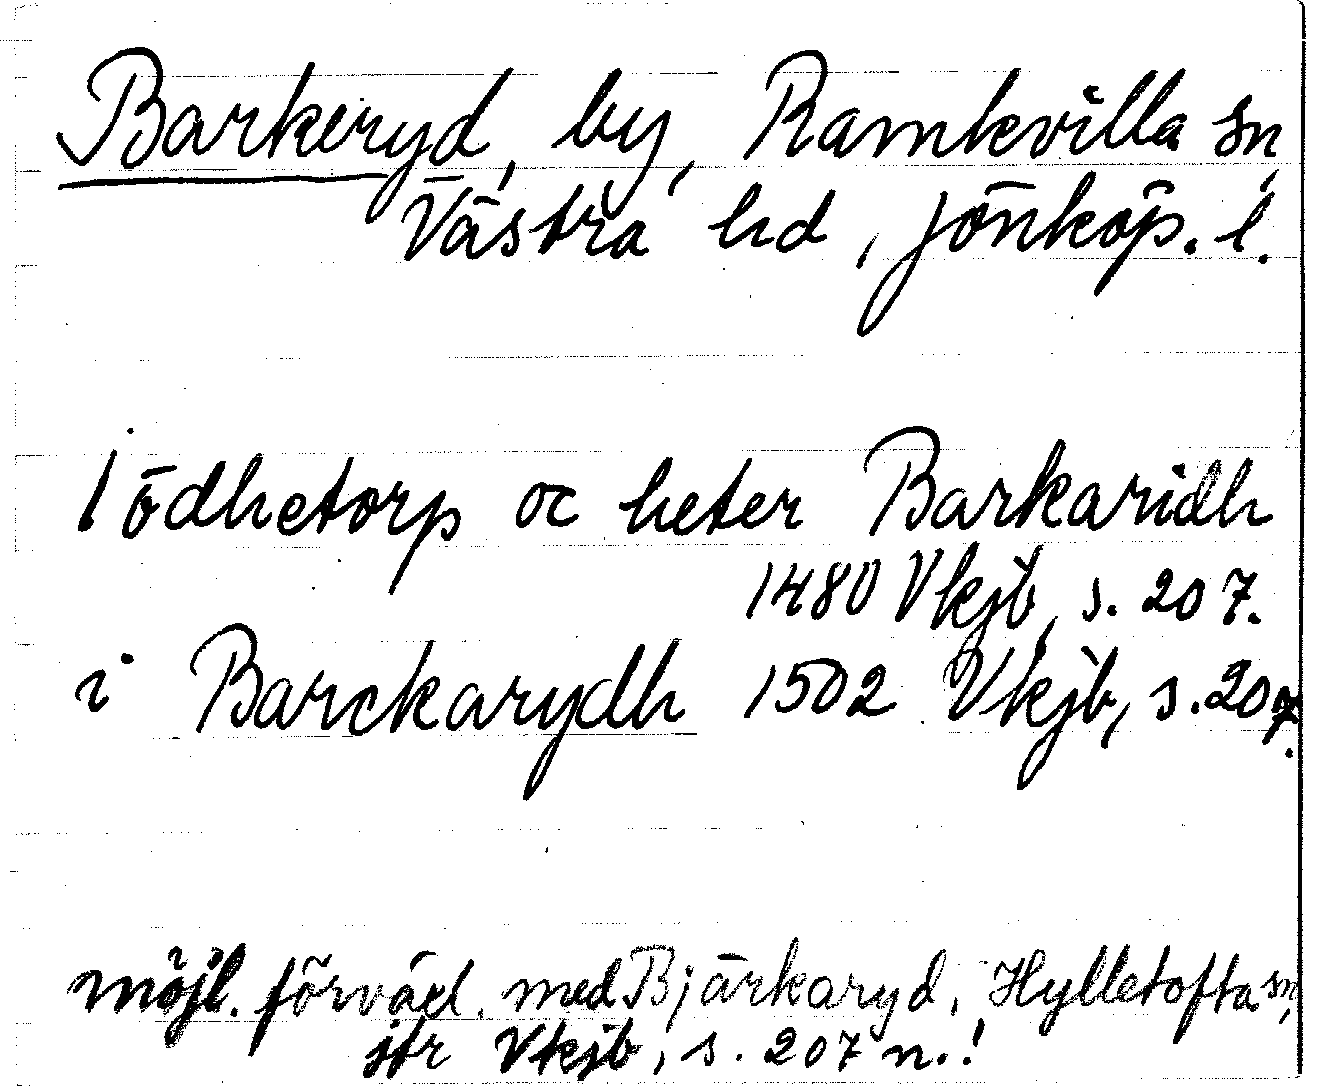 Barkeryd, by, Ramkvilla sn,
Västra hd, Jönköp. l.
I ödhetorp oc heter Barkaridh
1480 Vkjb, s. 207.
i Barckarydh 1502 Vkjb, s. 207.
möjl. förväxl. med Bjärkaryd, Hylletofta sn,
jfr Vkjb, s. 207 n.!